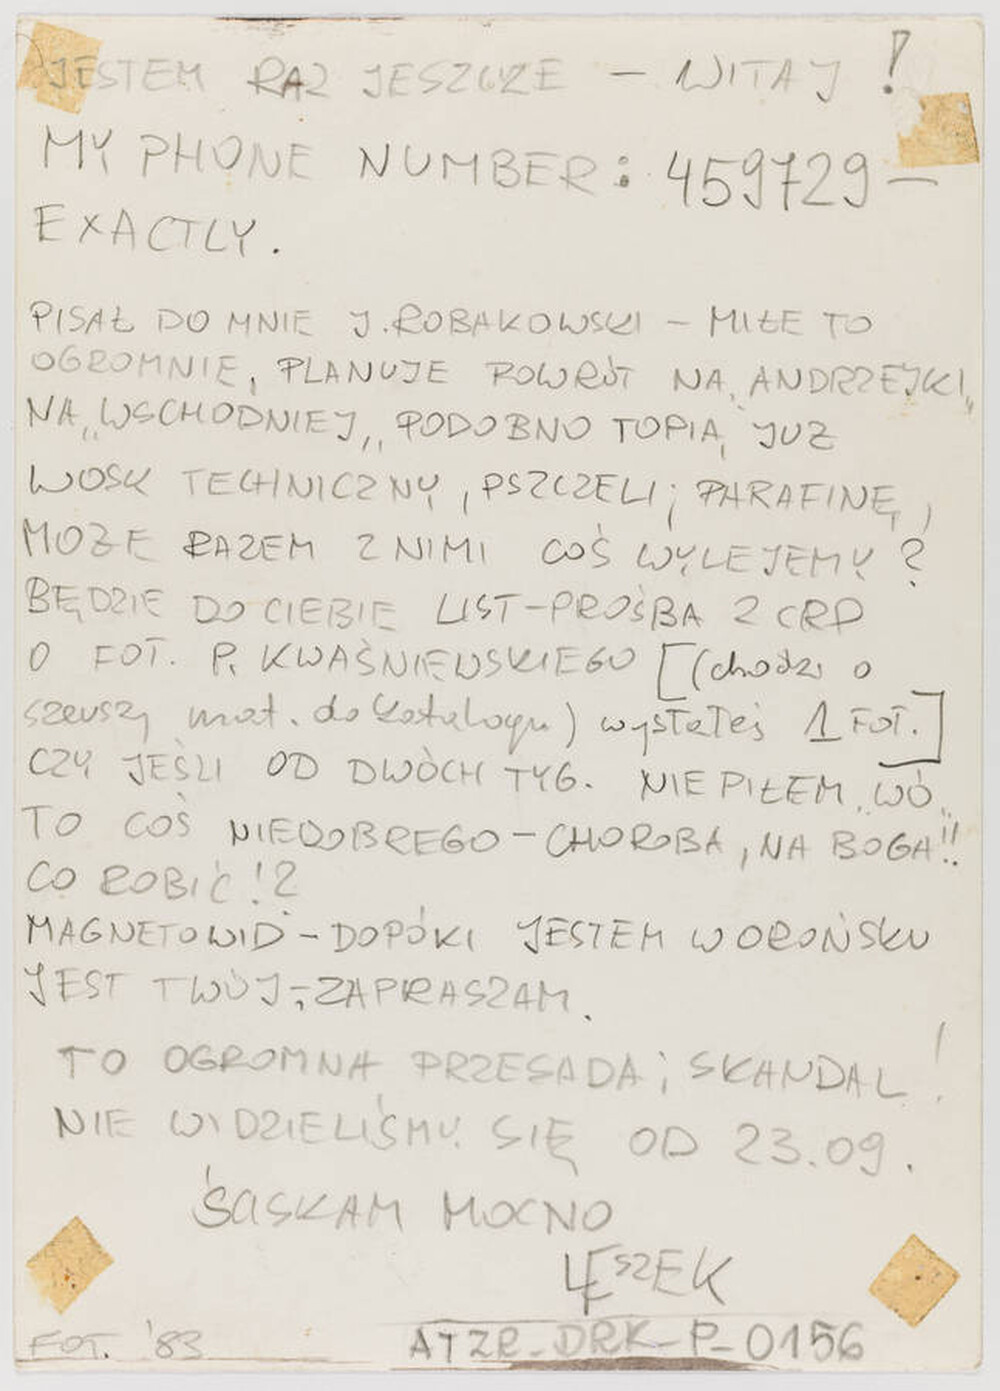 JESTEM RAZ JESZCZE – WITAJ!
MY PHONE NUMBER: 459729 –
EXACTLY.
PISAŁ DO MNIE J. ROBAKOWSKI – MIŁE TO
OGROMNIE, PLANUJE POWRÓT NA „ANDRZEJKI”
NA „WSCHODNIEJ„ PODOBNO TOPIĄ JUŻ
WOSK TECHNICZNY, PSZCZELI; PARAFINĘ,
MOŻE RAZEM Z NIMI COŚ WYLEJEMY?
BĘDZIE DO CIEBIE LIST–PROŚBA Z CRP
O FOT. P. KWAŚNIEWSKIEGO [(chodzi o
szerszy mat. do katalogu) wysłałeś 1 FOT.]
CZY JEŚLI OD DWÓCH TYG. NIE PIŁEM „WÓ„
TO COŚ NIEDOBREGO – CHOROBA, NA BOGA!!
CO ROBIĆ!?
MAGNETOWID – DOPÓKI JESTEM W OROŃSKU
JEST TWÓJ – ZAPRASZAM.
TO OGROMNA PRZESADA i SKANDAL!
NIE WIDZIELIŚMY SIĘ OD 23.09.
ŚASKAM MOCNO
LESZEK
FOT. '83
ATZR-DRK-P-0156